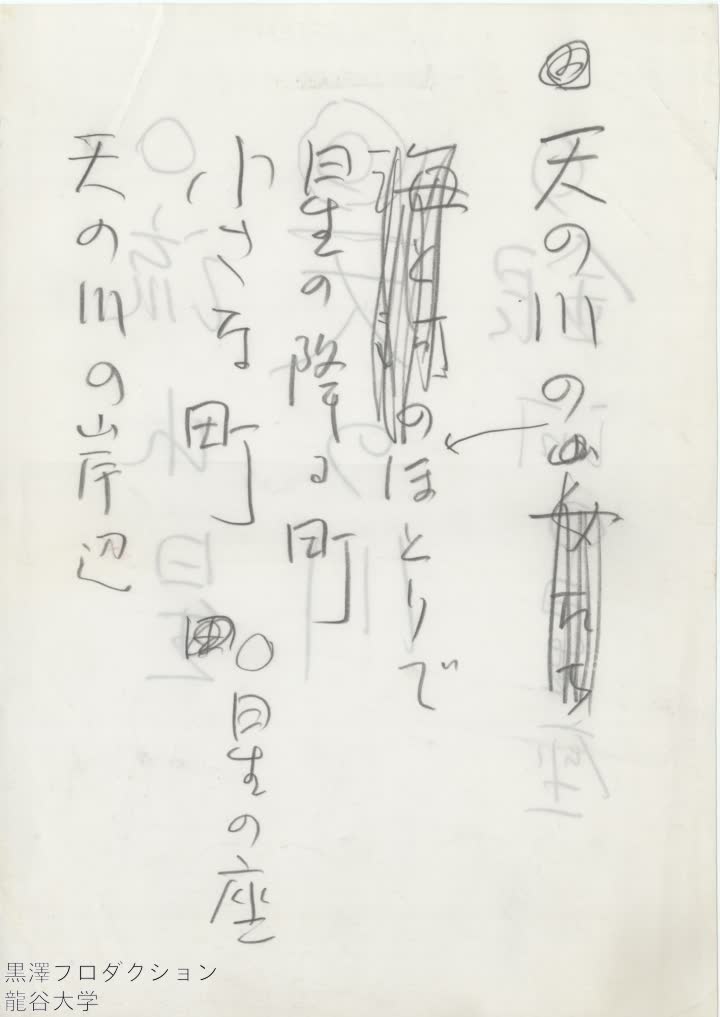 天の川の
海と町のほとりで
星の降る町
小さな町
○星の座
天の川の岸辺
黒澤プロダクション
龍谷大学